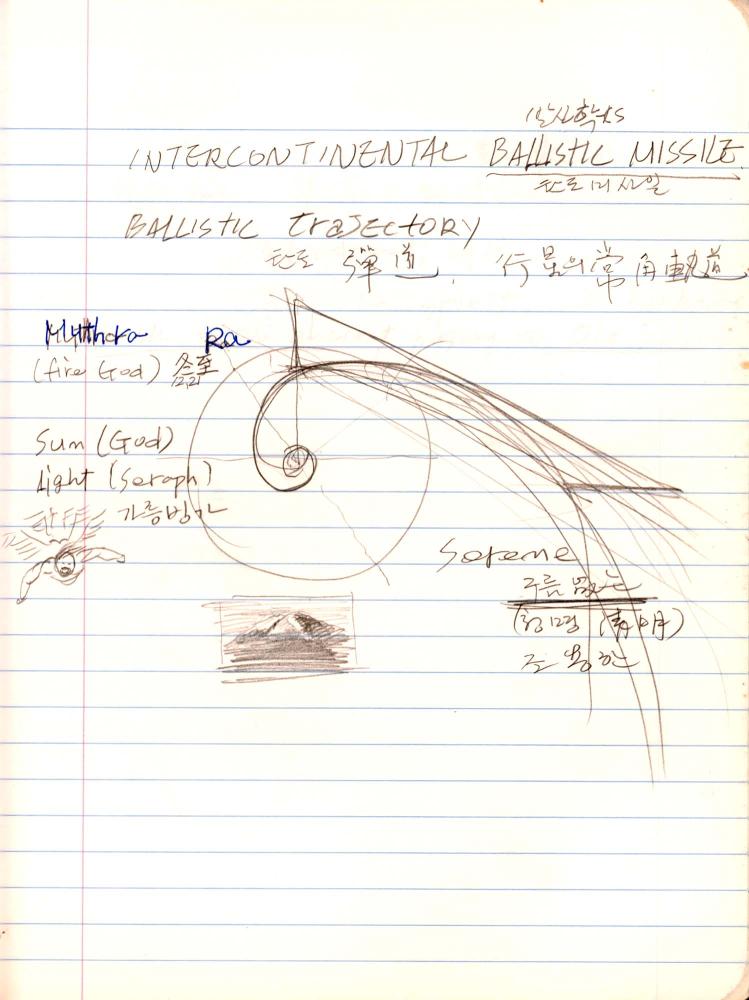 INTERCONTINENTAL BALLISTIC MISSILE.
탄도미사일
BALLISTIC TRAJECTORY
탄도 彈道, 行星의常角軌道
Ra
(fire God) 冬至
Sun (God)
Light (Seraph)
가릉빙가
Serene
구름 없는
청명 (靑明)
조용한